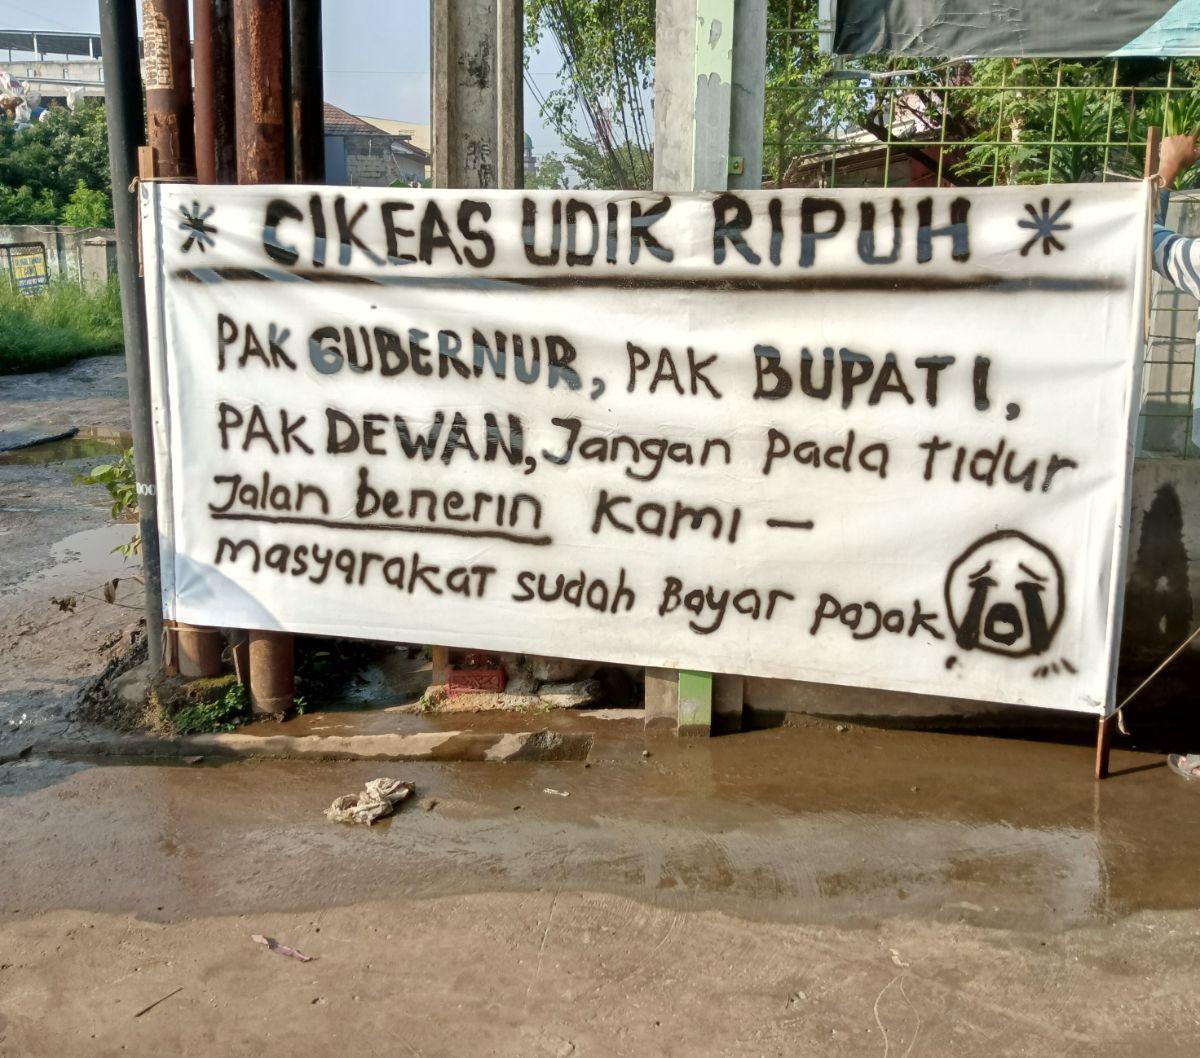 * CIKEAS UDIK RIPUH *
PAK GUBERNUR, PAK BUPATI,
PAK DEWAN, Jangan Pada Tidur
Jalan benerin Kami —
masyarakat sudah Bayar Pajak